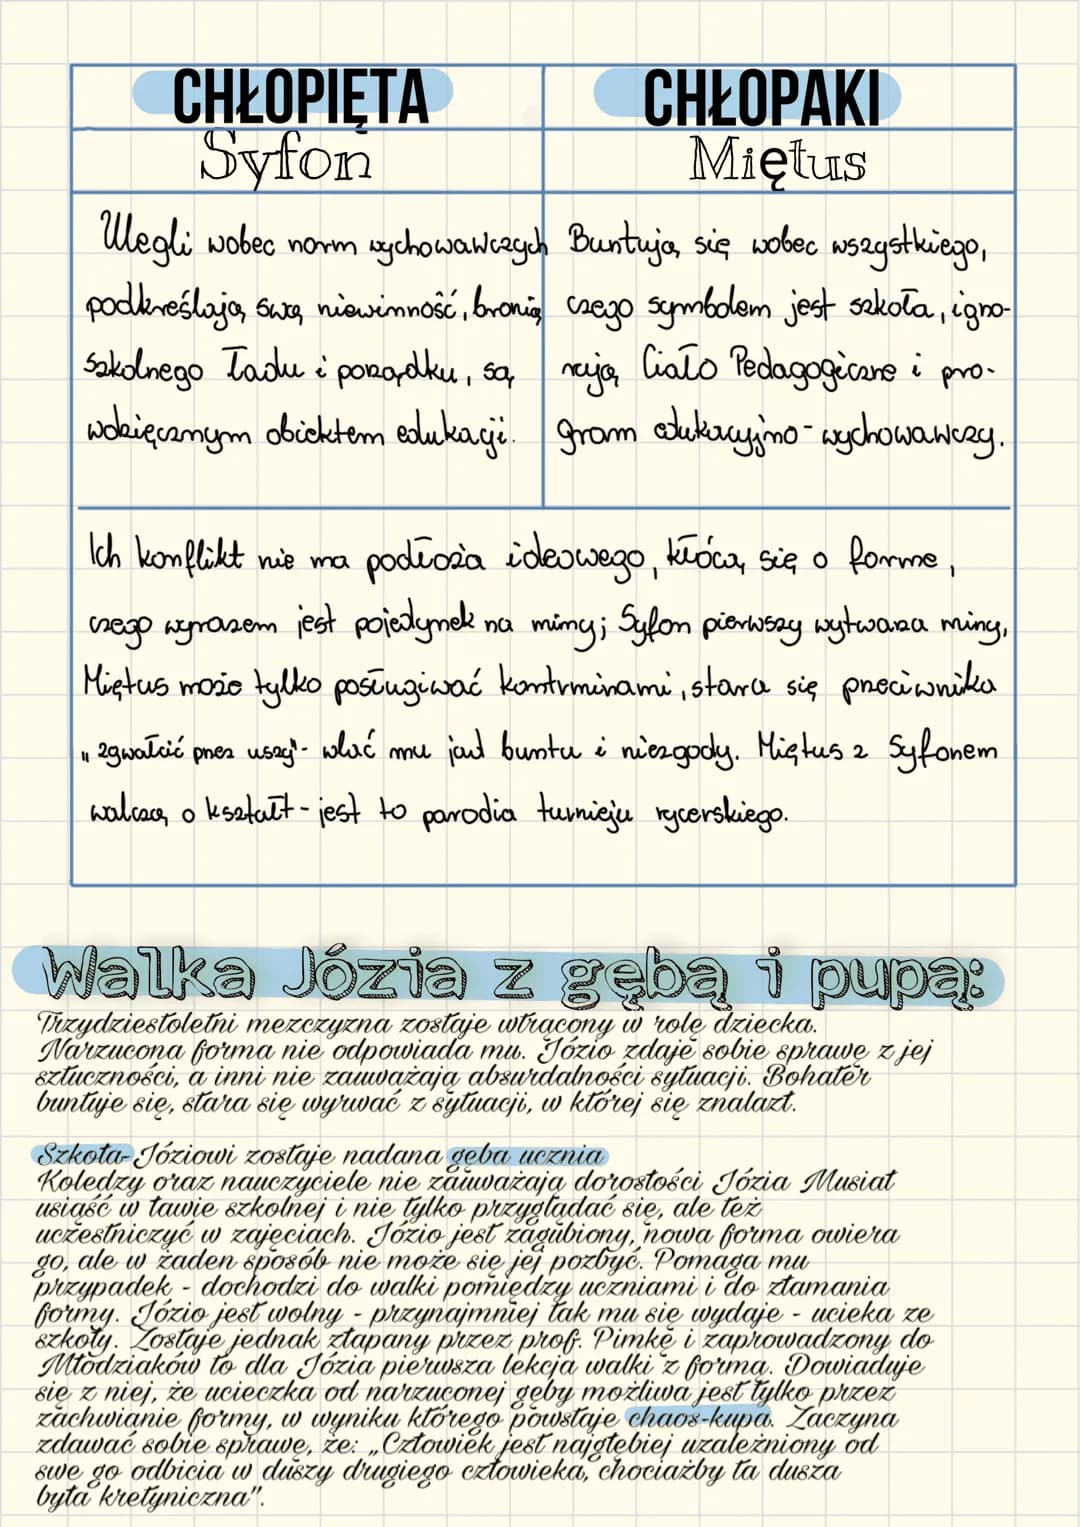 CHŁOPIĘTA
CHŁOPAKI
Syfon
Miętus
Ulegli wobec norm wychowawczych
podkreślają swą niewinność, bronią
szkolnego ładu i porządku, są
wdzięcznym obiektem edukacji.
Buntują się wobec wszystkiego,
czego symbolem jest szkoła, igno-
rują Ciało Pedagogiczne i pro-
gram edukacyjno-wychowawczy.
Ich konflikt nie ma podłoża ideowego, kłócą się o formę,
czego wyrazem jest pojedynek na miny; Syfon pierwszy wytwarza miny,
Miętus może tylko posługiwać kontrminami, stara się przeciwnika
„zgwałcić przez uszy"- wlać mu jad buntu i niezgody. Miętus z Syfonem
walczą o kształt - jest to parodia turnieju rycerskiego.
Walka Józia z gębą i pupą:
Trzydziestoletni mezczyzna zostaje wtrącony w rolę dziecka.
Narzucona forma nie odpowiada mu. Józio zdaje sobie sprawę z jej
sztuczności, a inni nie zauważają absurdalności sytuacji. Bohater
buntuje się, stara się wyrwać z sytuacji, w której się znalazł.
Szkoła- Józiowi zostaje nadana gęba ucznia
Koledzy oraz nauczyciele nie zauważają dorosłości Józia Musiał
usiąść w ławie szkolnej i nie tylko przyglądać się, ale też
uczestniczyć w zajęciach. Józio jest zagubiony, nowa forma owiera
go, ale w żaden sposób nie może się jej pozbyć. Pomaga mu
przypadek - dochodzi do walki pomiędzy uczniami i do złamania
formy. Józio jest wolny - przynajmniej tak mu się wydaje - ucieka ze
szkoły. Zostaje jednak złapany przez prof. Pimkę i zaprowadzony do
Młodziaków to dla Józia pierwsza lekcja walki z formą. Dowiaduje
się z niej, że ucieczka od narzuconej gęby możliwa jest tylko przez
zachwianie formy, w wyniku którego powstaje chaos-kupa. Zaczyna
zdawać sobie sprawę, że: „Człowiek jest najgłębiej uzależniony od
swe go odbicia w duszy drugiego człowieka, chociażby ta dusza
była kretyniczna".